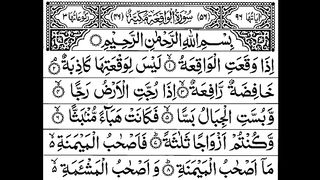 اٰیاتها ٩٦ (٥٦) سُوْرَةُ الْوَاقِعَةِ مَكِّيَّةٌ (٤٦) رکوعاتها ٣
بِسْمِ اللّٰهِ الرَّحْمٰنِ الرَّحِيْمِ
اِذَا وَقَعَتِ الْوَاقِعَةُ ۙ١ لَيْسَ لِوَقْعَتِهَا كَاذِبَةٌ ۘ٢
خَافِضَةٌ رَّافِعَةٌ ۙ٣ اِذَا رُجَّتِ الْاَرْضُ رَجًّا ۙ٤
وَّبُسَّتِ الْجِبَالُ بَسًّا ۙ٥ فَكَانَتْ هَبَآءً مُّنْۢبَثًّا ۙ٦
وَّكُنْتُمْ اَزْوَاجًا ثَلٰثَةً ؕ٧ فَاَصْحٰبُ الْمَيْمَنَةِ ۙ
مَاۤ اَصْحٰبُ الْمَيْمَنَةِ ؕ٨ وَ اَصْحٰبُ الْمَشْـَٔمَةِ ۙ